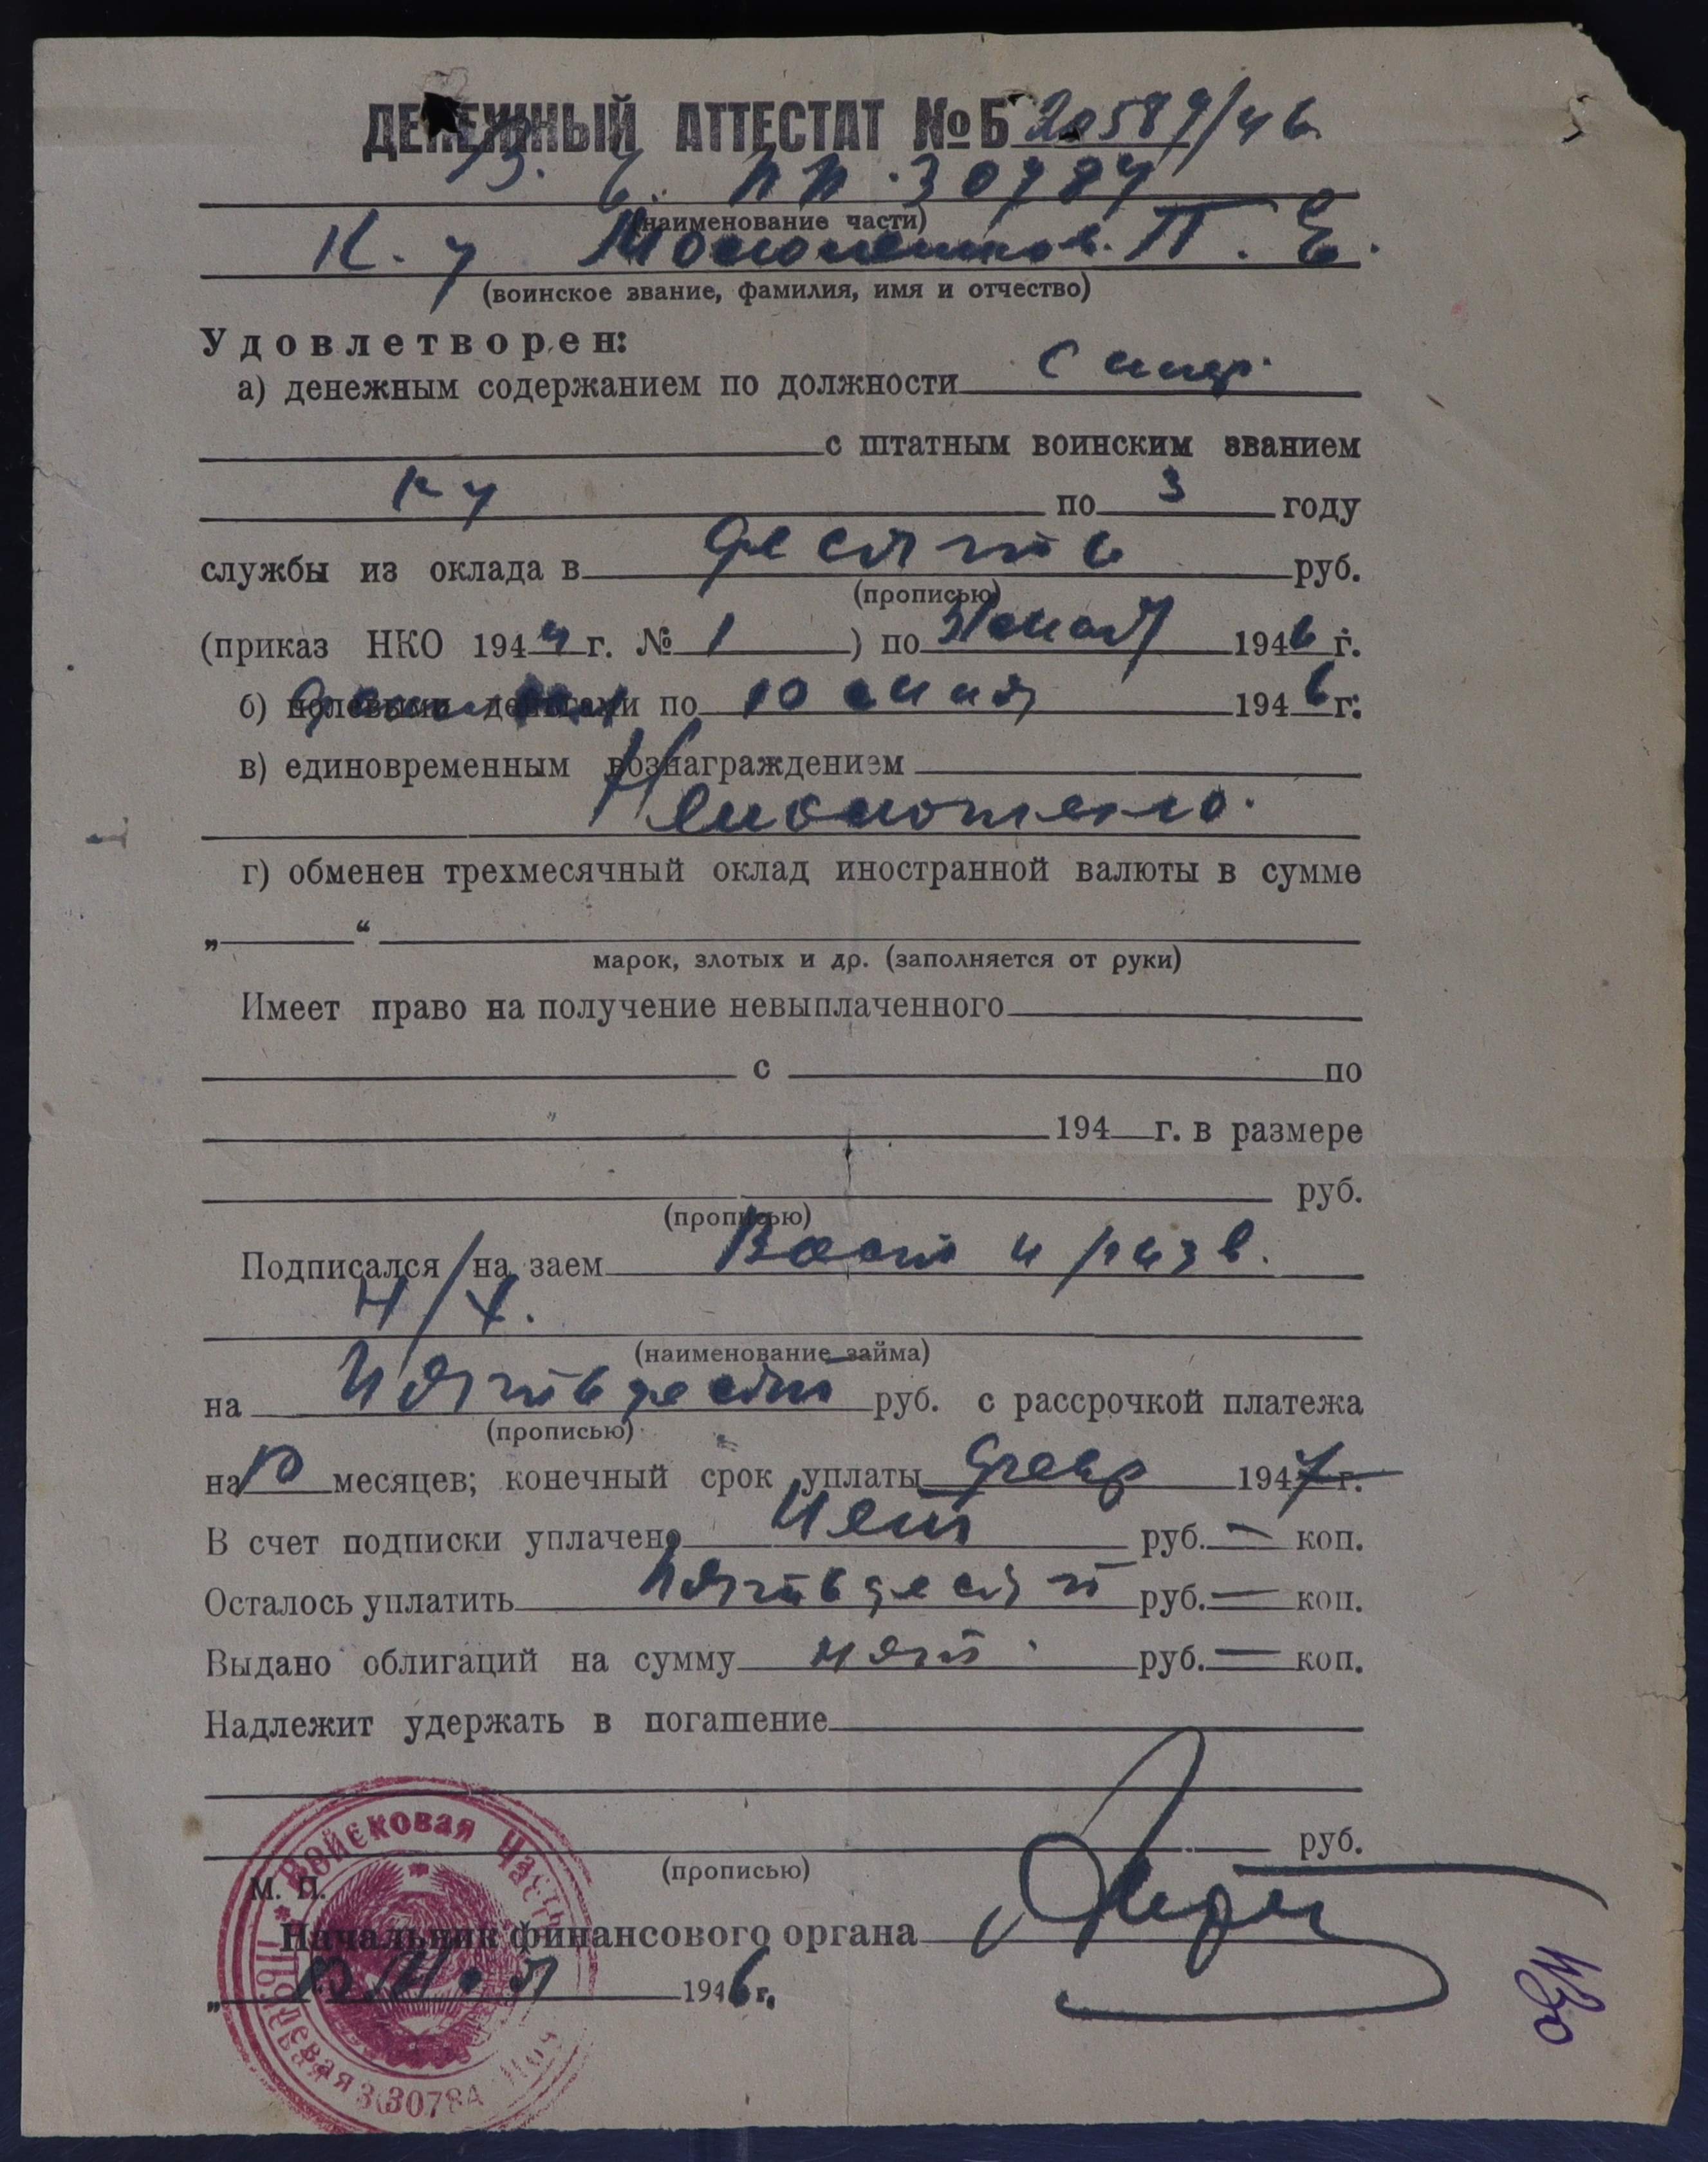 ДЕНЕЖНЫЙ АТТЕСТАТ №Б 20589/46
В. Ч. ПП. 30784
(наименование части)
К. у П. Е.
(воинское звание, фамилия, имя и отчество)
Удовлетворен:
а) денежным содержанием по должности
с штатным воинским званием
Ку по 3 году
службы из оклада в десять руб.
(прописью)
(приказ НКО 1944 г. № 1 ) по 31 мая 1946 г.
б) полевыми деньгами по 10 мая 1946 г.
в) единовременным вознаграждением
г) обменен трехмесячный оклад иностранной валюты в сумме
„ “
марок, злотых и др. (заполняется от руки)
Имеет право на получение невыплаченного
с по
194 г. в размере
руб.
(прописью)
Подписался на заем Восст и разв.
Н/Х.
(наименование займа)
на Пятьдесят руб. с рассрочкой платежа
(прописью)
на 10 месяцев; конечный срок уплаты февр 1947 г.
В счет подписки уплачено Нет руб. — коп.
Осталось уплатить Пятьдесят руб. — коп.
Выдано облигаций на сумму нет руб. — коп.
Надлежит удержать в погашение
руб.
(прописью)
М. П.
Начальник финансового органа
„ 1946 г.
Войсковая Часть
Полевая Почта
30784